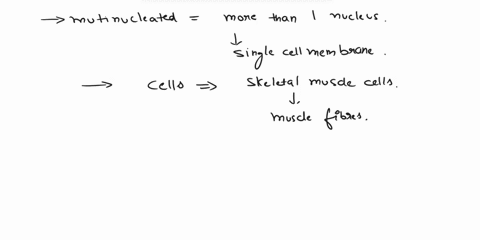 → mutinucleated = more than 1 nucleus.
↓
single cell membrane.
→ cells ⇒ skeletal muscle cells.
↓
muscle fibres.